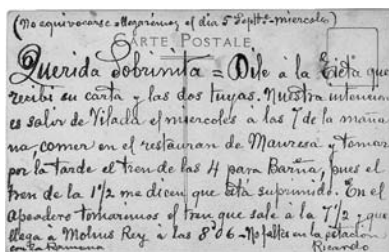 (No equivocarse llegaremos el dia 5 Sepbre - miercoles)
CARTE POSTALE
Querida Sobrinita = Dile à la Tieta que
recibi su carta y las dos tuyas. Nuestra intencion
es salir de Vilada el miercoles a las 7 de la maña
na, comer en el restauran de Manresa y tomar
por la tarde el tren de las 4 para Barña, pues el
tren de la 1½ me dicen que está suprimido. En el
apeadero tomaremos el tren que sale à la 7½ y que
llega à Molins Rey à las 8'06 - No faltes en la estación
con la Ramona Ricardo